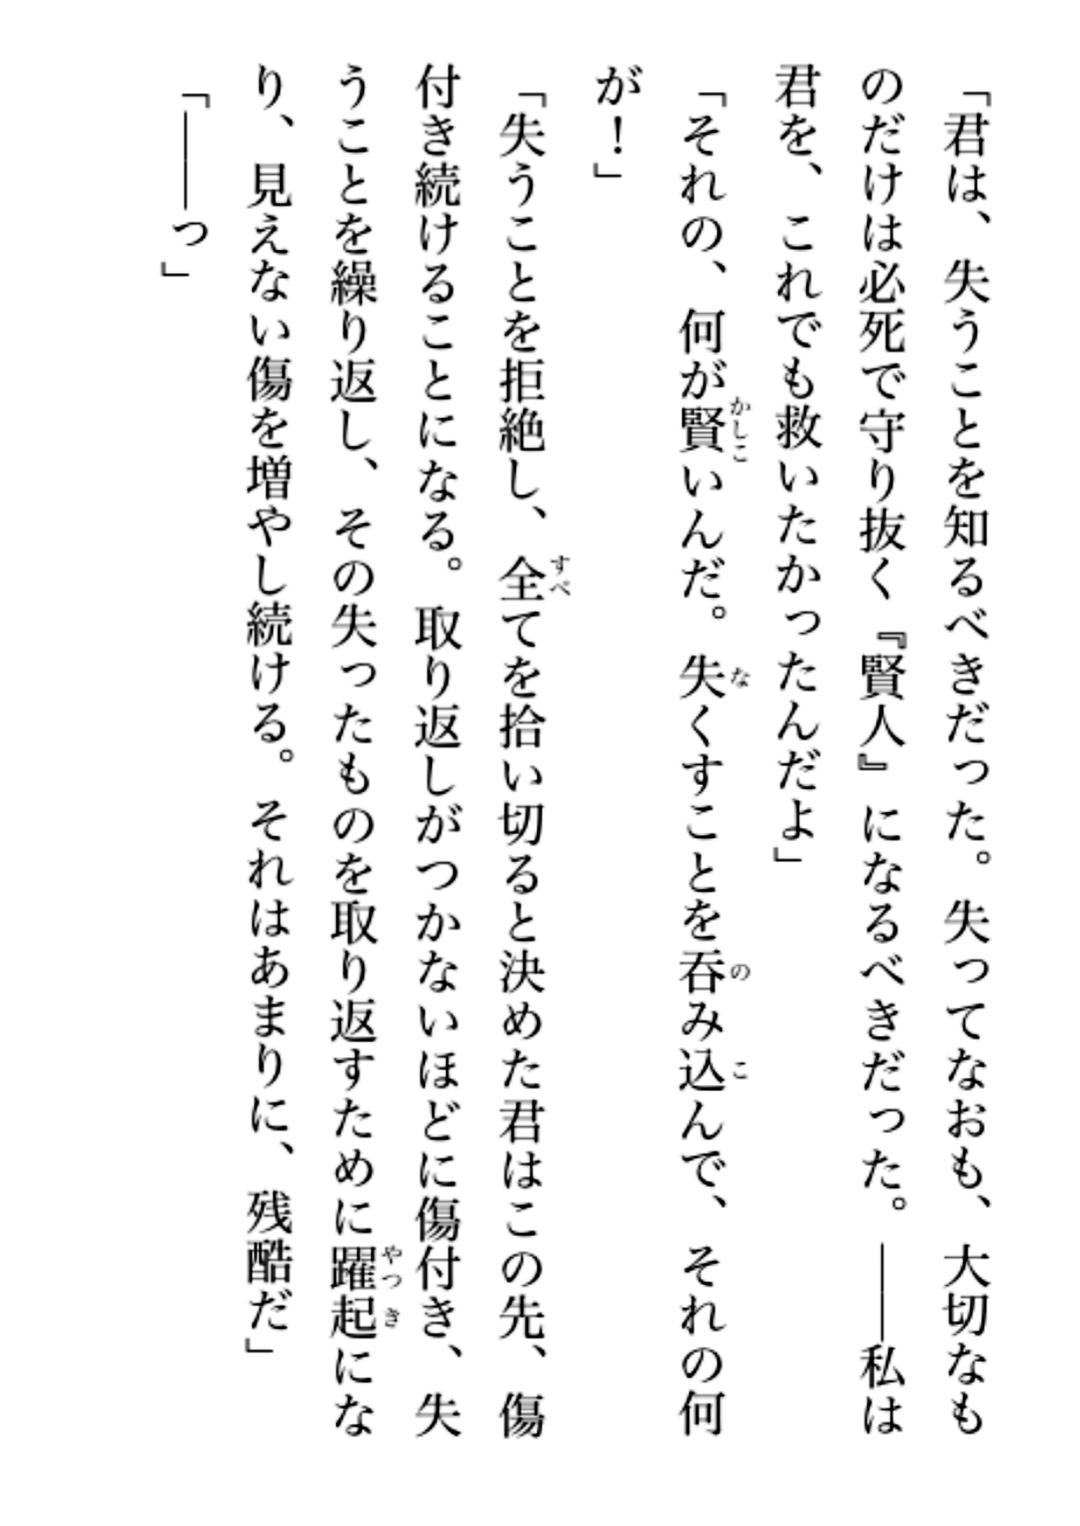 「君は、失うことを知るべきだった。失ってなおも、大切なも
のだけは必死で守り抜く『賢人』になるべきだった。――私は
君を、これでも救いたかったんだよ」
「それの、何が賢いんだ。失くすことを呑み込んで、それの何
が！」
「失うことを拒絶し、全てを拾い切ると決めた君はこの先、傷
付き続けることになる。取り返しがつかないほどに傷付き、失
うことを繰り返し、その失ったものを取り返すために躍起にな
り、見えない傷を増やし続ける。それはあまりに、残酷だ」
「――っ」